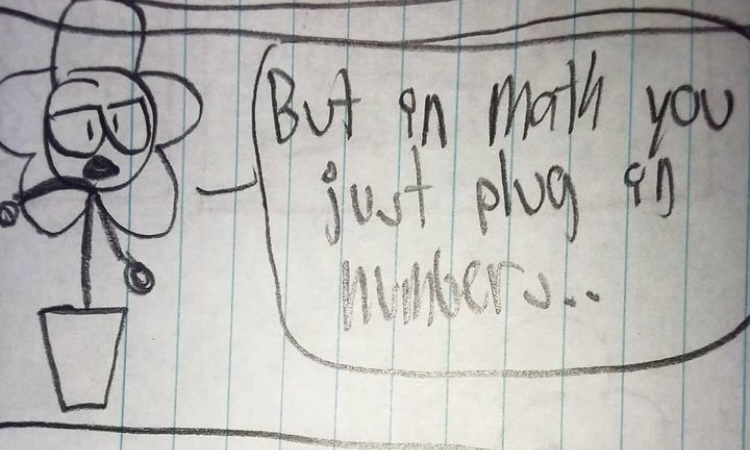 But in math you
just plug in
numbers..